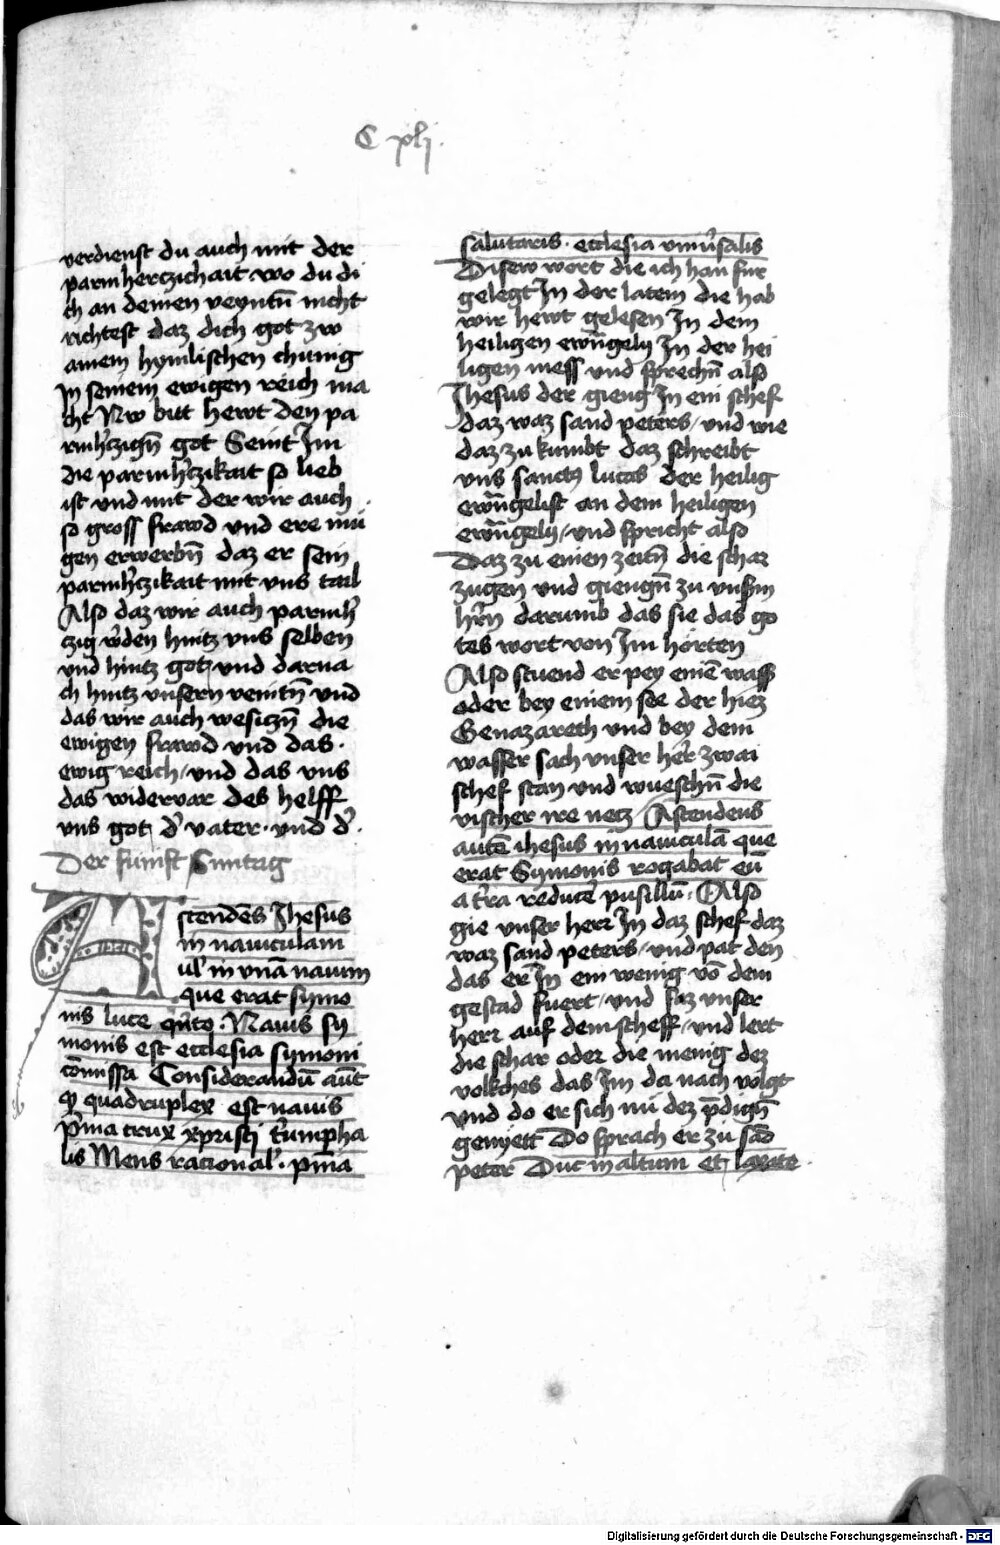 C xlj.
verdienst du auch mit der
parmherczichait wo du di
ch an deinen veyntn̄ nicht
richtest daz dich got zw
ainem hymlischen chunig
In seinem ewigen reich ma
cht Nw bitt hewt den pa
rmh̓czign̄ got Seint Im
die parmh̓czikait so lieb
ist vnd mit der wir auch
so gross frawd vnd ere mu
gen erwerbn̄ daz er sein
parmh̓czikait mit vns tail
Also daz wir auch parmh̓
czig w̓den hintz vns selben
vnd hintz got vnd darna
ch hintz vnsern veintn̄ vnd
das wir auch wesiczn̄ die
ewigen frawd vnd das
ewig reich / vnd das vns
das widervar des helff
vns got d̓ vater · vnd d̓ ·
Der funft Suntag
Ascendēs Jhesus
in nauiculam
ul̓ in vnā nauim
que erat symo
nis luce qn̓to · Nauis sy
monis est ecclesia symoni
cōmissa Considerandū aūt
ꝙ quadruplex est nauis
p̓ma crux xpristi t̓umpha
lis Mens racional̓ · p̓ma
salutaris · ecclesia vniu̓salis
Disew wort die ich han fur
gelegt In der latein die hab
wir hewt gelesen In dem
heiligen ewn̄gely In der hei
ligen mess vnd sprechn̄ also
Jhesus der gieng In ein schef
daz waz sand peters / vnd wie
daz zu kumbt daz schreibt
vns sanctus lucas der heilig
ewn̄gelist an dem heiligen
ewn̄gely / vnd spricht also
Daz zu einen zeitn̄ die schar
zugen vnd giengn̄ zu vnserm
hr̄n darumb das sie das go
tes wort von Im horten
Also stuend er pey einē wass
oder bey einem see der hiez
Genazareth vnd bey dem
wasser sach vnser her̓ zwai
schef stan vnd wueschn̄ die
vischer ire netz Ascendens
autē ihesus in nauiculā que
erat Symonis rogabat eū
a t̓ra reduce̓ pusillū · Also
gie vnser herr In daz schef daz
waz sand peters / vnd pat den
das er In ein wenig vō dem
gestad fuert / vnd saz vnser
herr auf dem scheff / vnd lert
die schar oder die menig dez
volkches das Im da nach volgt
vnd do er sich nu dez p̄dign̄
genyett Do sprach er zu sād
peter Duc in altum et laxate
Digitalisierung gefördert durch die Deutsche Forschungsgemeinschaft - DFG